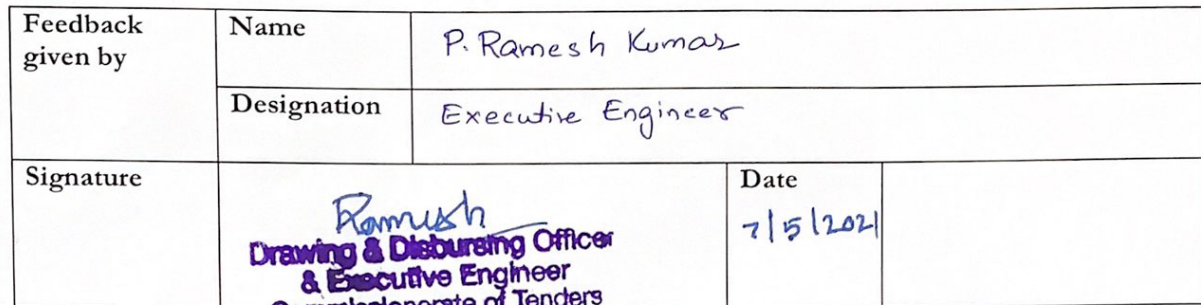 Feedback
given by
Name
P. Ramesh Kumar
Designation
Executive Engineer
Signature
Ramesh
Drawing & Disbursing Officer
& Executive Engineer
Commissionerate of Tenders
Date
7/5/2021